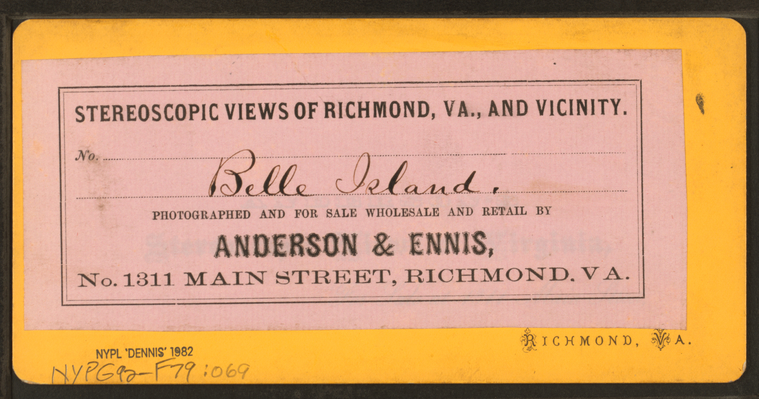 STEREOSCOPIC VIEWS OF RICHMOND, VA., AND VICINITY.
No.
Belle Island.
PHOTOGRAPHED AND FOR SALE WHOLESALE AND RETAIL BY
ANDERSON & ENNIS,
No. 1311 MAIN STREET, RICHMOND, VA.
RICHMOND, VA.
NYPL 'DENNIS' 1982
NYPG92-F79:069